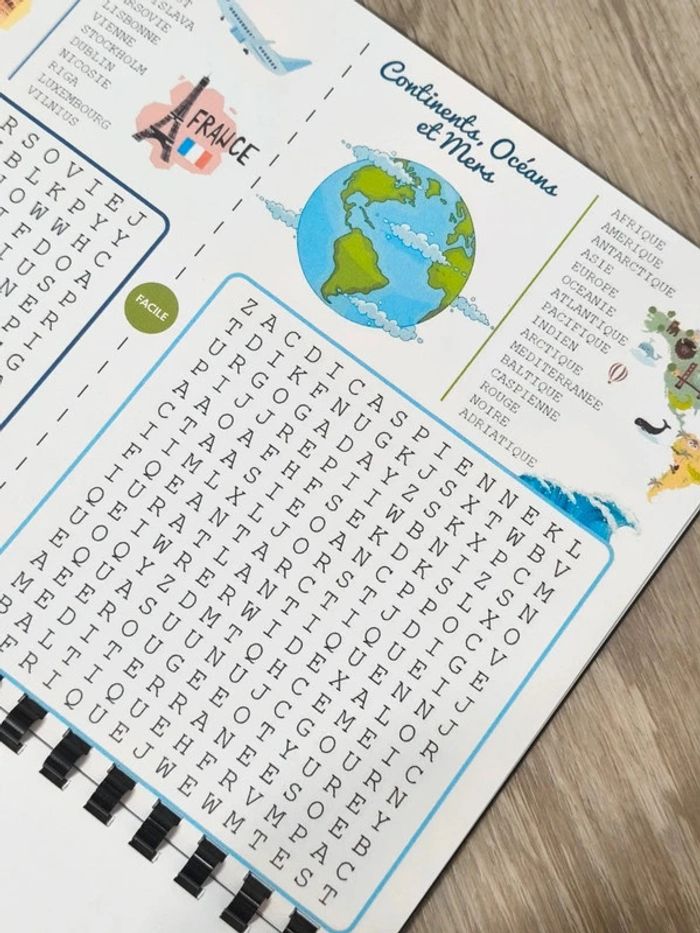 LISBONNE
VIENNE
STOCKHOLM
DUBLIN
NICOSIE
RIGA
LUXEMBOURG
VILNIUS
FRANCE
R S O V I E J
B L K P Y Y
O W W H C
F D O A
U S P
E R
P I
G
FACILE
Continents, Océans
et Mers
AFRIQUE
AMERIQUE
ANTARCTIQUE
ASIE
EUROPE
OCEANIE
ATLANTIQUE
PACIFIQUE
INDIEN
ARCTIQUE
MEDITERRANEE
BALTIQUE
CASPIENNE
ROUGE
NOIRE
ADRIATIQUE
Z A C D I C A S P I E N N E K L
T D I K F N U G K J S X T W B V
U R G O G A D A Y Z S K X P C M
P I J J R E P I I W B N I Z S N
A A O A F H F S E K D K S L X O
C T A A S I E O A N C P P O C V
I I M L X L J O R S T J D I G E
F Q E A N T A R C T I Q U E I J
I U R A T L A N T I Q U E N N J
Q E I W R E R W I D E X A L O R
U O Q Y Z D M T Q H C E M E I C
E Q U A S U U N U J C G O U R N
A E E R O U G E E O T Y U R E Y
M E D I T E R R A N E E S O E B
B A L T I Q U E H F R V M P A C
F R I Q U E J W E W M T E S T